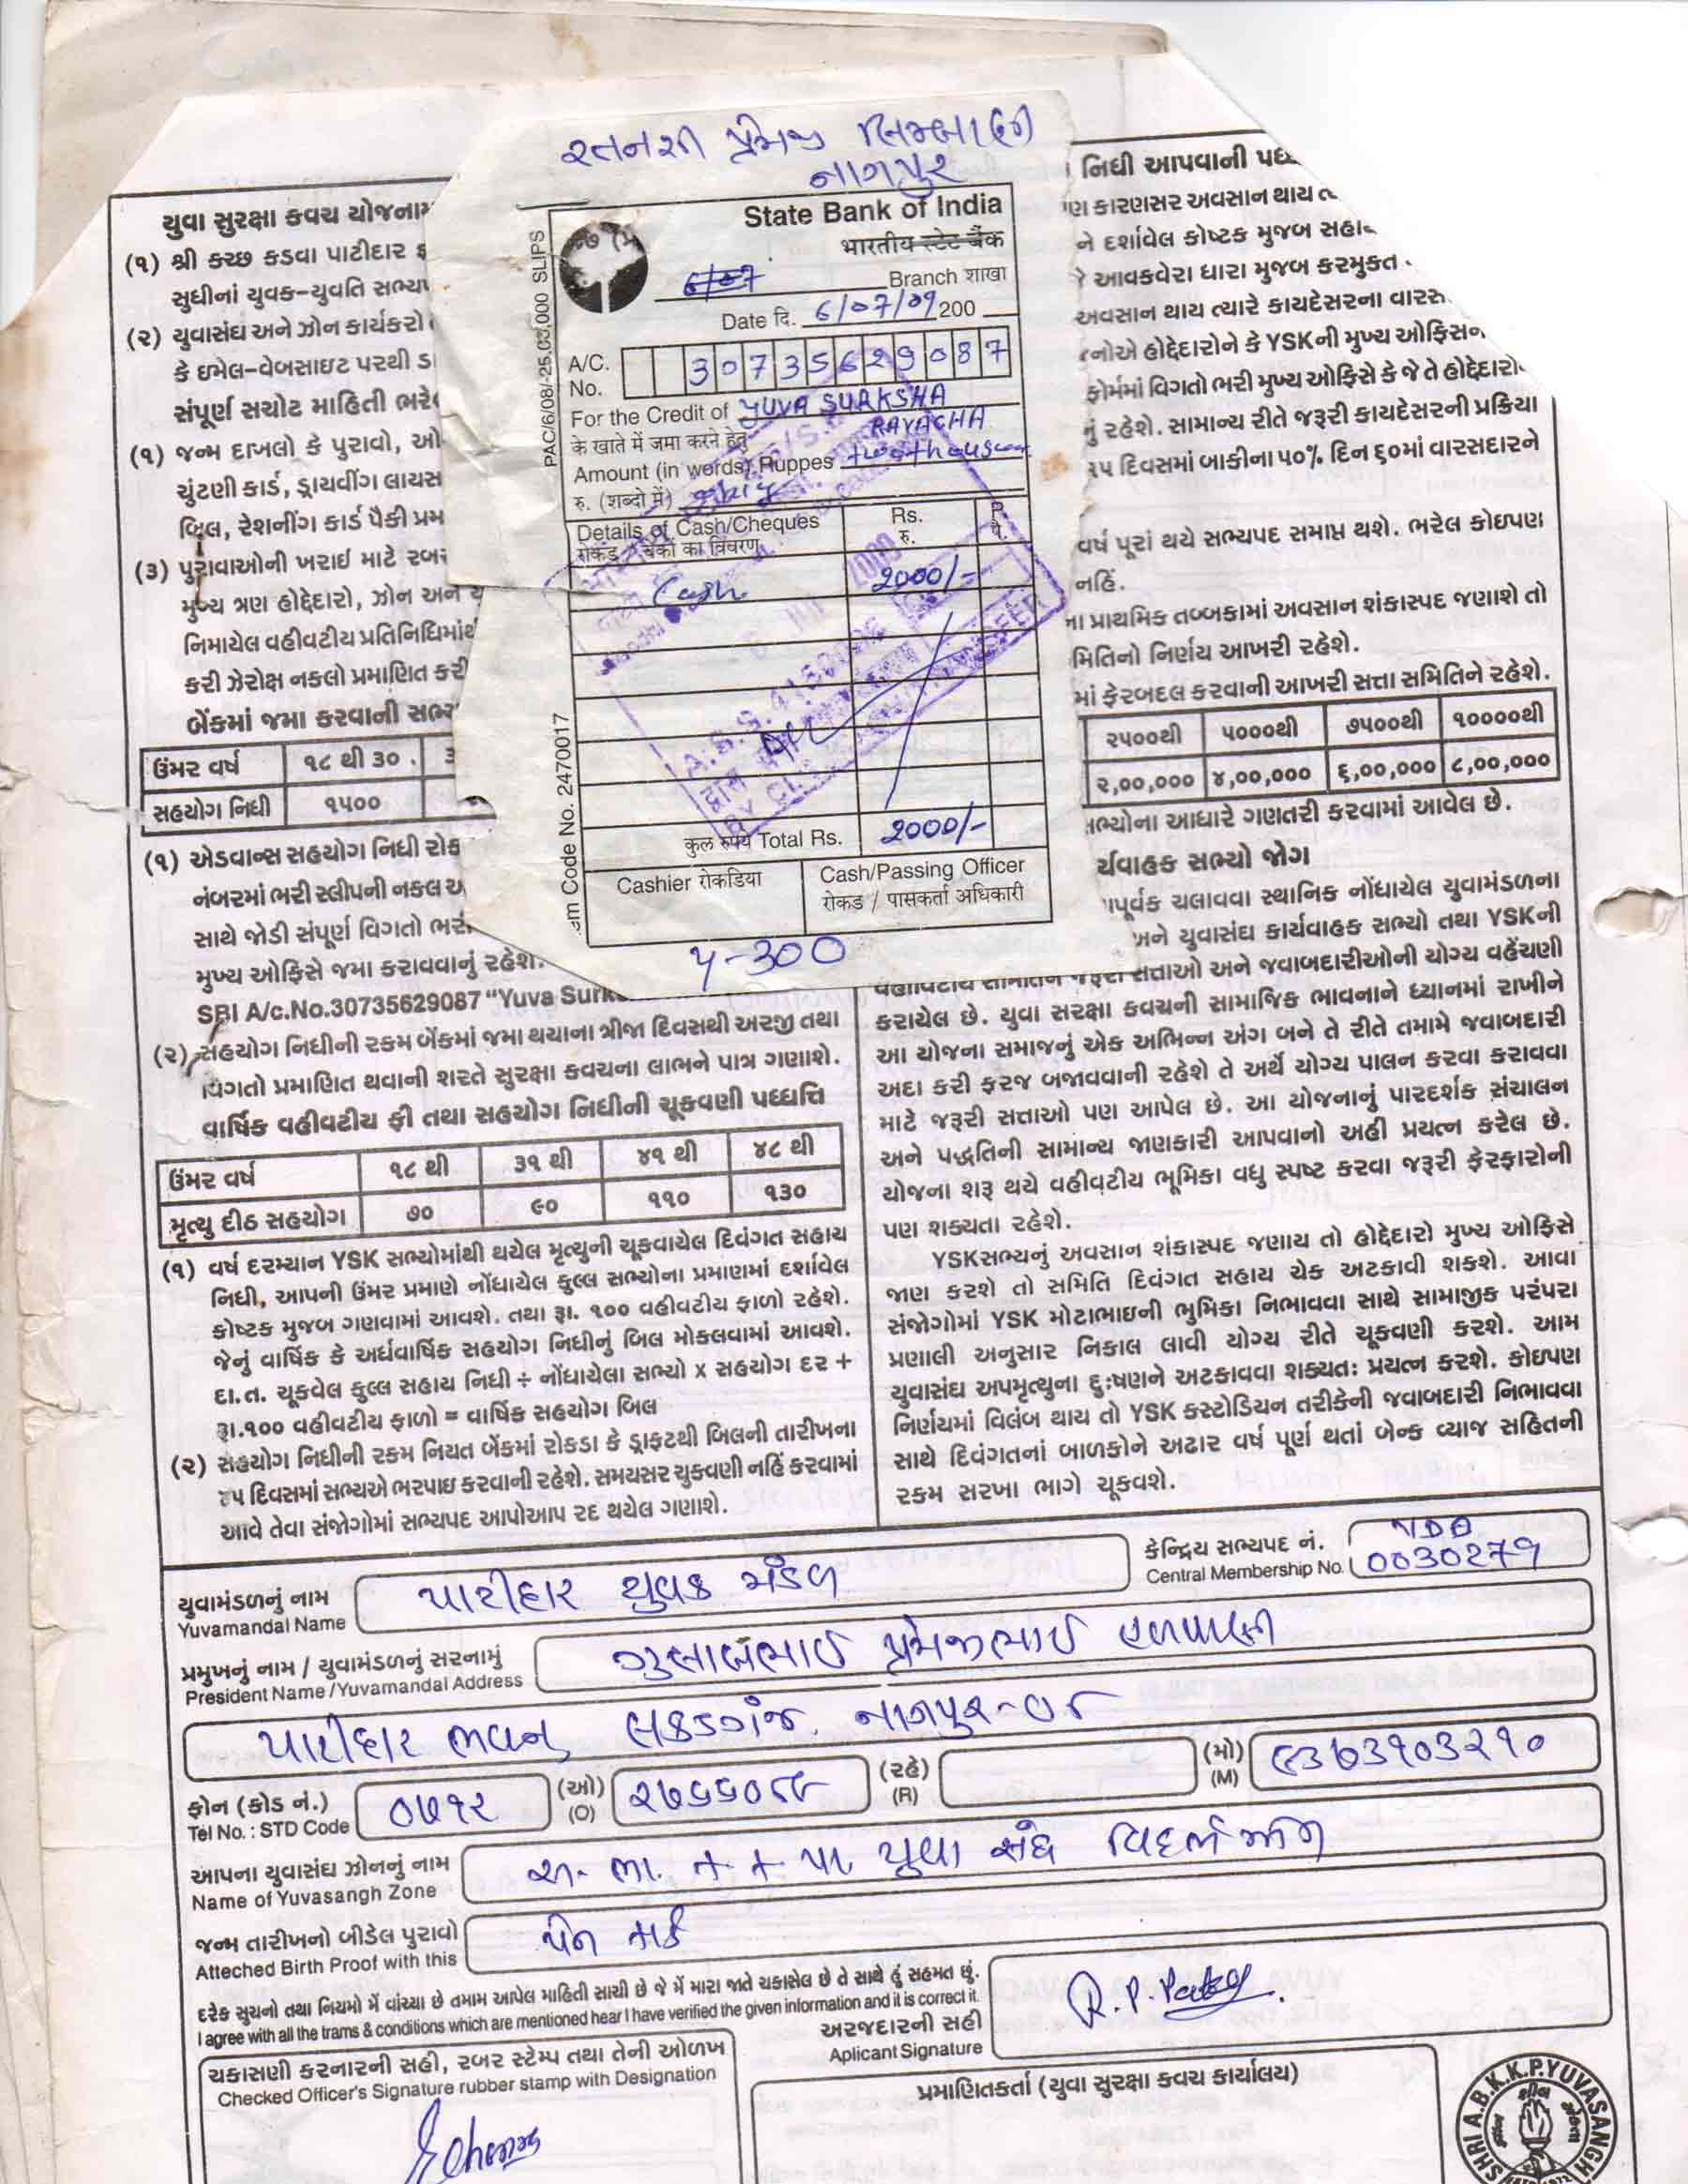 રતનશી પ્રેમજી
નાગપુર
State Bank of India
भारतीय स्टेट बैंक
Branch शाखा
Date दि. 6/07/09 200
A/C. No. 30735629087
For the Credit of YUVA SURKSHA
के खाते में जमा करने हेतु KAVACHA
Amount (in words) Ruppes two thousan
रु. (शब्दो में) only
Details of Cash/Cheques Rs. P.
रोकड़ / चेकों का विवरण रु. पै.
Cash 2000/-
कुल रुपये Total Rs. 2000/-
Cashier रोकडिया
Cash/Passing Officer
रोकड / पासकर्ता अधिकारी
PAC/6/08/-25,03,000 SLIPS
Code No. 2470017
૫-300
યુવા સુરક્ષા કવચ યોજના
(૧) શ્રી કચ્છ કડવા પાટીદાર
સુધીનાં યુવક-યુવતિ સભ્ય
(૨) યુવાસંઘ અને ઝોન કાર્યકરો
કે ઇમેલ-વેબસાઇટ પરથી ડા
સંપૂર્ણ સચોટ માહિતી ભરે
(૧) જન્મ દાખલો કે પુરાવો, ઓ
ચુંટણી કાર્ડ, ડ્રાયવીંગ લાયસ
બિલ, રેશનીંગ કાર્ડ પૈકી પ્રમ
(૩) પુરાવાઓની ખરાઇ માટે રબર
મુખ્ય ત્રણ હોદ્દેદારો, ઝોન અને
નિમાયેલ વહીવટીય પ્રતિનિધિમાંથ
કરી ઝેરોક્ષ નકલો પ્રમાણિત કરી
બેંકમાં જમા કરવાની સભ્ય
ઉંમર વર્ષ ૧૮ થી ૩૦
સહયોગ નિધી ૧૫૦૦
(૧) એડવાન્સ સહયોગ નિધી રોક
નંબરમાં ભરી સ્લીપની નકલ અ
સાથે જોડી સંપૂર્ણ વિગતો ભરી
મુખ્ય ઓફિસે જમા કરાવવાનું રહેશે.
SBI A/c.No.30735629087 “Yuva Surk
(૨) સહયોગ નિધીની રકમ બેંકમાં જમા થયાના ત્રીજા દિવસથી અરજી તથા
વિગતો પ્રમાણિત થવાની શરતે સુરક્ષા કવચના લાભને પાત્ર ગણાશે.
વાર્ષિક વહીવટીય ફી તથા સહયોગ નિધીની ચૂકવણી પધ્ધતિ
ઉંમર વર્ષ ૧૮ થી ૩૧ થી ૪૧ થી ૪૮ થી
મૃત્યુ દીઠ સહયોગ ૭૦ ૯૦ ૧૧૦ ૧૩૦
(૧) વર્ષ દરમ્યાન YSK સભ્યોમાંથી થયેલ મૃત્યુની ચૂકવાયેલ દિવંગત સહાય
નિધી, આપની ઉંમર પ્રમાણે નોંધાયેલ કુલ્લ સભ્યોના પ્રમાણમાં દર્શાવેલ
કોષ્ટક મુજબ ગણવામાં આવશે. તથા રૂા. ૧૦૦ વહીવટીય ફાળો રહેશે.
જેનું વાર્ષિક કે અર્ધવાર્ષિક સહયોગ નિધીનું બિલ મોકલવામાં આવશે.
દા.ત. ચૂકવેલ કુલ્લ સહાય નિધી ÷ નોંધાયેલા સભ્યો x સહયોગ દર +
રૂા.૧૦૦ વહીવટીય ફાળો = વાર્ષિક સહયોગ બિલ
(૨) સહયોગ નિધીની રકમ નિયત બેંકમાં રોકડા કે ડ્રાફટથી બિલની તારીખના
૪૫ દિવસમાં સભ્યએ ભરપાઇ કરવાની રહેશે. સમયસર ચુકવણી નહિં કરવામાં
આવે તેવા સંજોગોમાં સભ્યપદ આપોઆપ રદ થયેલ ગણાશે.
નિધી આપવાની પધ્
ણ કારણસર અવસાન થાય ત્
ને દર્શાવેલ કોષ્ટક મુજબ સહા
આવકવેરા ધારા મુજબ કરમુકત
અવસાન થાય ત્યારે કાયદેસરના વારસ
જનોએ હોદ્દેદારોને કે YSKની મુખ્ય ઓફિસન
ફોર્મમાં વિગતો ભરી મુખ્ય ઓફિસે કે જે તે હોદ્દેદારો
નું રહેશે. સામાન્ય રીતે જરૂરી કાયદેસરની પ્રક્રિયા
૩૫ દિવસમાં બાકીના ૫૦% દિન ૬૦માં વારસદારને
વર્ષ પૂરાં થયે સભ્યપદ સમાપ્ત થશે. ભરેલ કોઇપણ
નહિં.
ના પ્રાથમિક તબ્બકામાં અવસાન શંકાસ્પદ જણાશે તો
મિતિનો નિર્ણય આખરી રહેશે.
માં ફેરબદલ કરવાની આખરી સત્તા સમિતિને રહેશે.
૨૫૦૦થી ૫૦૦૦થી ૭૫૦૦થી ૧૦૦૦૦થી
૨,૦૦,૦૦૦ ૪,૦૦,૦૦૦ ૬,૦૦,૦૦૦ ૮,૦૦,૦૦૦
ભ્યોના આધારે ગણતરી કરવામાં આવેલ છે.
ર્યવાહક સભ્યો જોગ
પૂર્વક ચલાવવા સ્થાનિક નોંધાયેલ યુવામંડળના
અને યુવાસંઘ કાર્યવાહક સભ્યો તથા YSKની
વહીવટીય સમિતિને જરૂરી સત્તાઓ અને જવાબદારીઓની યોગ્ય વહેંચણી
કરાયેલ છે. યુવા સરક્ષા કવચની સામાજિક ભાવનાને ધ્યાનમાં રાખીને
આ યોજના સમાજનું એક અભિન્ન અંગ બને તે રીતે તમામે જવાબદારી
અદા કરી ફરજ બજાવવાની રહેશે તે અર્થે યોગ્ય પાલન કરવા કરાવવા
માટે જરૂરી સત્તાઓ પણ આપેલ છે. આ યોજનાનું પારદર્શક સંચાલન
અને પદ્ધતિની સામાન્ય જાણકારી આપવાનો અહી પ્રયત્ન કરેલ છે.
યોજના શરૂ થયે વહીવટીય ભૂમિકા વધુ સ્પષ્ટ કરવા જરૂરી ફેરફારોની
પણ શક્યતા રહેશે.
YSKસભ્યનું અવસાન શંકાસ્પદ જણાય તો હોદ્દેદારો મુખ્ય ઓફિસે
જાણ કરશે તો સમિતિ દિવંગત સહાય ચેક અટકાવી શકશે. આવા
સંજોગોમાં YSK મોટાભાઇની ભુમિકા નિભાવવા સાથે સામાજીક પરંપરા
પ્રણાલી અનુસાર નિકાલ લાવી યોગ્ય રીતે ચૂકવણી કરશે. આમ
યુવાસંઘ અપમૃત્યુના દુઃષણને અટકાવવા શક્યતઃ પ્રયત્ન કરશે. કોઇપણ
નિર્ણયમાં વિલંબ થાય તો YSK કસ્ટોડિયન તરીકેની જવાબદારી નિભાવવા
સાથે દિવંગતનાં બાળકોને અઢાર વર્ષ પૂર્ણ થતાં બેન્ક વ્યાજ સહિતની
રકમ સરખા ભાગે ચૂકવશે.
યુવામંડળનું નામ પાટીદાર યુવક મંડળ
Yuvamandal Name
કેન્દ્રિય સભ્યપદ નં.
Central Membership No. 0030279
પ્રમુખનું નામ / યુવામંડળનું સરનામું ગુલાબભાઈ પ્રેમજીભાઈ
President Name /Yuvamandal Address
પાટીદાર ભવન લકડગંજ, નાગપુર-૦૮
ફોન (કોડ નં.) ૦૭૧૨ (ઓ) ૨૭૬૬૦૮૯ (રહે) (મો) ૯૩૭૩૧૦૩૨૧૦
Tel No. : STD Code (O) (R) (M)
આપના યુવાસંઘ ઝોનનું નામ યુવા સંઘ વિદર્ભ
Name of Yuvasangh Zone
જન્મ તારીખનો બીડેલ પુરાવો પેન
Atteched Birth Proof with this
દરેક સુચનો તથા નિયમો મેં વાંચ્યા છે તમામ આપેલ માહિતી સાચી છે જે મેં મારા જાતે ચકાસેલ છે તે સાથે હું સહમત છું.
I agree with all the trams & conditions which are mentioned hear I have verified the given information and it is correct it.
અરજદારની સહી
Aplicant Signature R.P. Patel
ચકાસણી કરનારની સહી, રબર સ્ટેમ્પ તથા તેની ઓળખ
Checked Officer's Signature rubber stamp with Designation
પ્રમાણિતકર્તા (યુવા સુરક્ષા કવચ કાર્યાલય)
SHRI A.B.K.K.P.YUVASANGH